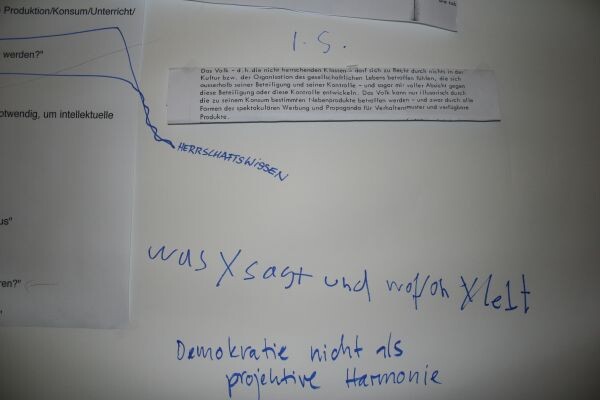 Produktion/Konsum/Unterricht/
werden?"
otwendig, um intellektuelle
us"
ren?"
I.S.
Das Volk – d.h. die nicht herrschenden Klassen – darf sich zu Recht durch nichts in der
Kultur bzw. der Organisation des gesellschaftlichen Lebens betroffen fühlen, die sich
ausserhalb seiner Beteiligung und seiner Kontrolle – und sogar mit voller Absicht gegen
diese Beteiligung oder diese Kontrolle entwickeln. Das Volk kann nur illusorisch durch
die zu seinem Konsum bestimmten Nebenprodukte betroffen werden – und zwar durch alle
Formen der spektakulären Werbung und Propaganda für Verhaltensmuster und verfügbare
Produkte.
HERRSCHAFTSWISSEN
was X sagt und wofon X lebt
Demokratie nicht als
projektive Harmonie